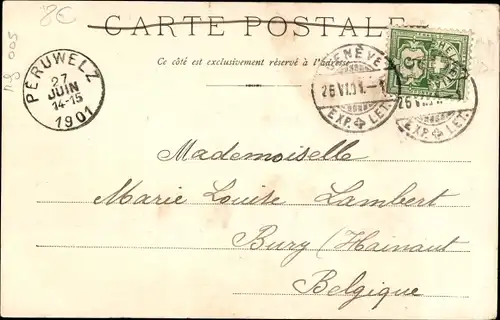 8€
CARTE POSTALE
Ce côté est exclusivement réservé à l'adresse
PÉRUWELZ
27
JUIN
14-15
1901
GENÈVE
26 VI.01.
EXP. LET.
HELVETIA
5
EXP. LET.
Mademoiselle
Marie Louise Lambert
Bury (Hainaut
Belgique